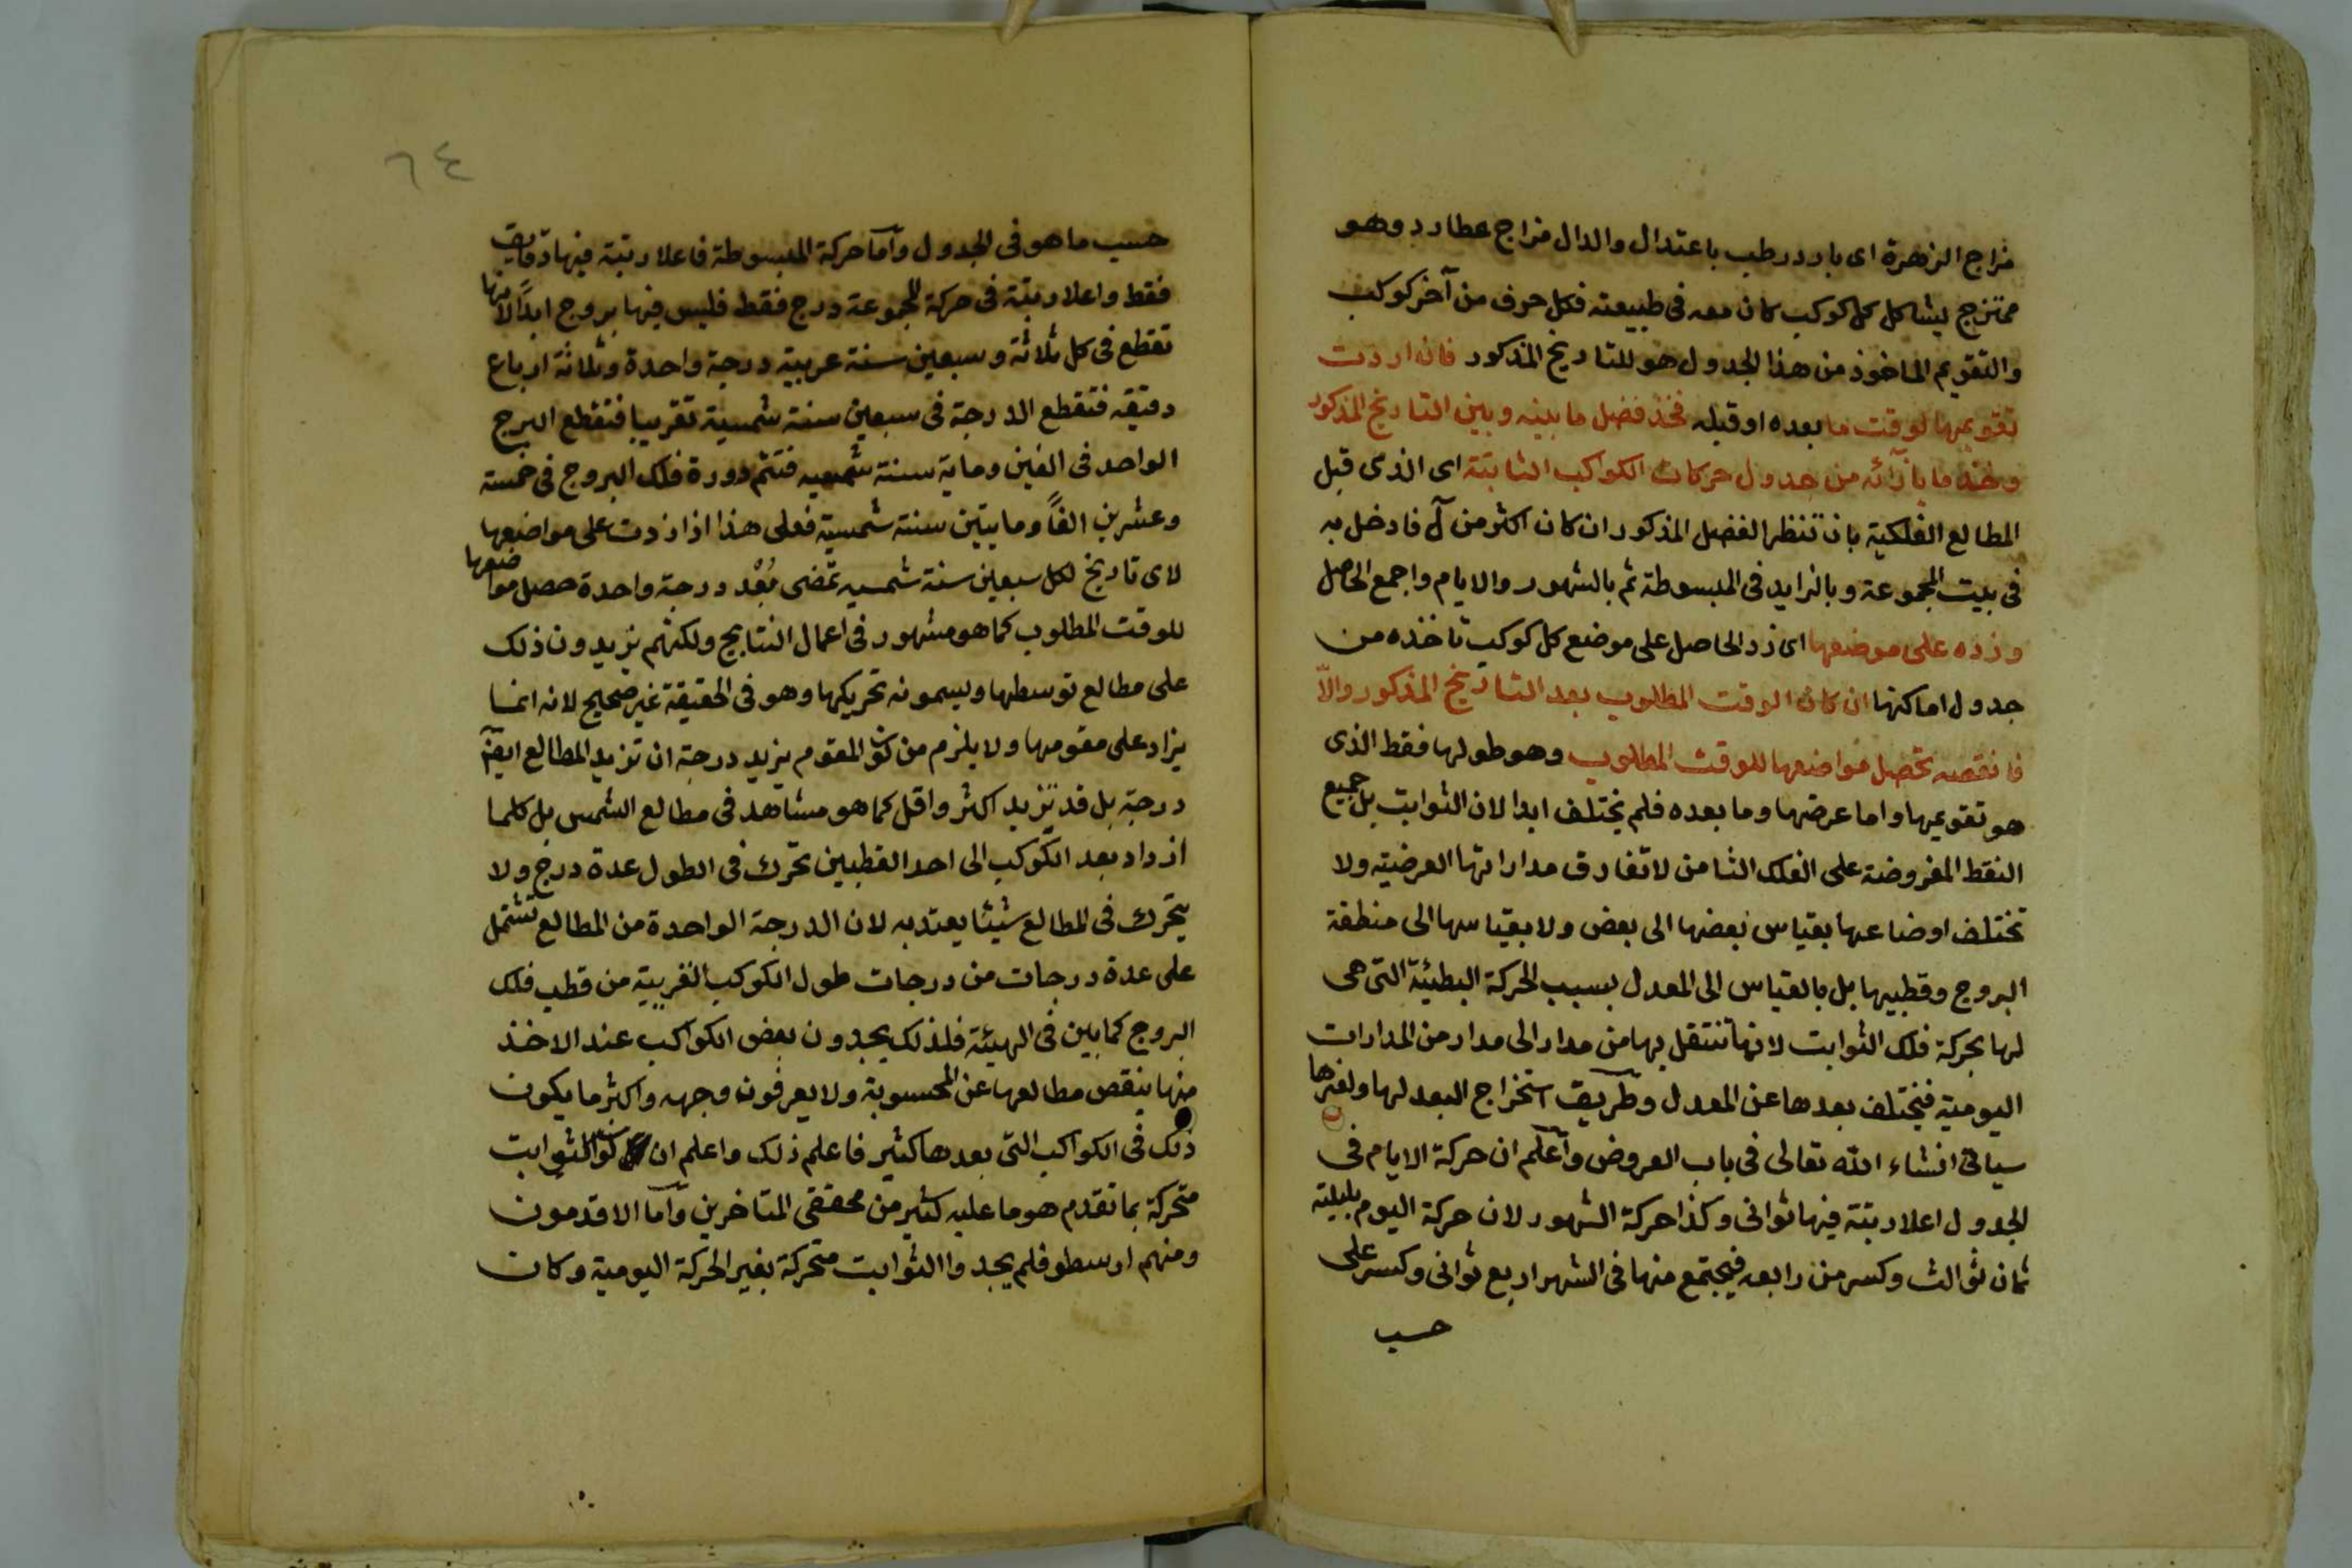 مزاج الزهرة اى بارد رطب باعتدال والدال مزاج عطارد وهو
ممتزج يشاكل كل كوكب كان معه فى طبيعته فكل حرف من آخر كوكب
والتقويم الماخوذ من هذا الجدول هو للتاريخ المذكور فان اردت
تقويمها لوقت ما بعده او قبله فخذ فضل ما بينه وبين التاريخ المذكور
وخذ ما بازائه من جدول حركات الكواكب الثابتة اى الذى قبل
المطالع الفلكية بان تنظر الفضل المذكور ان كان اكثر من ل فادخل به
فى بيت المجموعة وبالزايد فى المبسوطة ثم بالشهور والايام واجمع الحاصل
وزده على موضعها اى زد الحاصل على موضع كل كوكب تاخذه من
جدول اماكنها ان كان الوقت المطلوب بعد التاريخ المذكور والاّ
فانقصه تحصل مواضعها للوقت المطلوب وهو طولها فقط الذى
هو تقويمها واما عرضها وما بعده فلم يختلف ابدا لان الثوابت بل جميع
النقط المفروضة على الفلك الثامن لا تفارق مداراتها العرضية ولا
تختلف اوضاعها بقياس بعضها الى بعض ولا بقياسها الى منطقة
البروج وقطبيها بل بالقياس الى المعدل بسبب الحركة البطيئة التى هى
لها بحركة فلك الثوابت لانها تنتقل بها من مدار الى مدار من المدارات
اليومية فيختلف بعدها عن المعدل وطريق استخراج البعد لها ولغيرها
سياتى انشاء الله تعالى فى باب العروض وآعلم ان حركة الايام فى
الجدول اعلا رتبة فيها ثوانى وكذا حركة الشهور لان حركة اليوم بليلته
ثمان ثوالث وكسر من رابعه فيجتمع منها فى الشهر اربع ثوانى وكسر على
حسب
٦٤
حسب ما هو فى الجدول وآما حركة المبسوطة فاعلا رتبة فيها دقايق
فقط واعلا رتبة فى حركة المجموعة درج فقط فليس فيها بروج ابدًا لانها
تقطع فى كل ثلاثة وسبعين سنة عربية درجة واحدة وثلاثة ارباع
دقيقه فتقطع الدرجة فى سبعين سنة شمسية تقريبا فتقطع البرج
الواحد فى الفين وماية سنة شمسيه فتتم دورة فلك البروج فى خمسة
وعشرين الفاً ومايتين سنة شمسية فعلى هذا اذا زدت على مواضعها
لاى تاريخ لكل سبعين سنة شمسيه تمضى بُعْد درجة واحدة حصل مواضعها
للوقت المطلوب كما هو مشهور فى اعمال النتايج ولكنهم يزيدون ذلك
على مطالع توسطها ويسمونه تحريكها وهو فى الحقيقة غير صحيح لانه انما
يزاد على مقومها ولا يلزم من كون المقوم يزيد درجة ان تزيد المطالع ايضا
درجة بل قد تزيد اكثر واقل كما هو مشاهد فى مطالع الشمس بل كلما
ازداد بعد الكوكب الى احد القطبين تحرك فى الطول عدة درج ولا
يتحرك فى المطالع شيئا يعتد به لان الدرجة الواحدة من المطالع تشتمل
على عدة درجات من درجات طول الكوكب القريبة من قطب فلك
البروج كما بين فى الهيئة فلذلك يجدون بعض الكواكب عند الاخذ
منها ينقص مطالعها عن المحسوبة ولا يعرفون وجهه واكثر ما يكون
ذلك فى الكواكب التى بعدها كثير فاعلم ذلك واعلم ان كون الثوابت
متحركة بما تقدم هو ما عليه كثير من محققى المتاخرين وآما الاقدمون
ومنهم ارسطو فلم يجدوا الثوابت متحركة بغير الحركة اليومية وكان